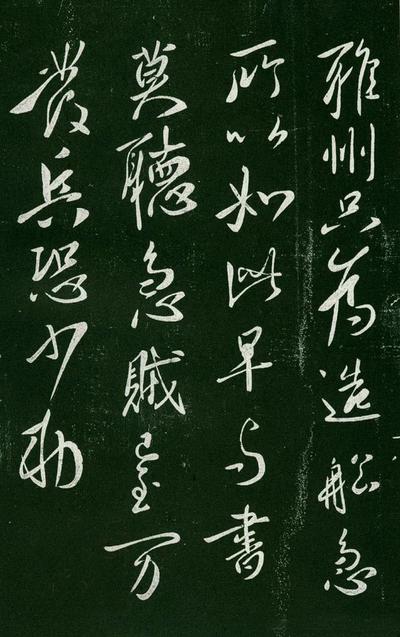 雅州只為造舩急
所以如此早与書
莫聽急賊至万
發兵恐少勅